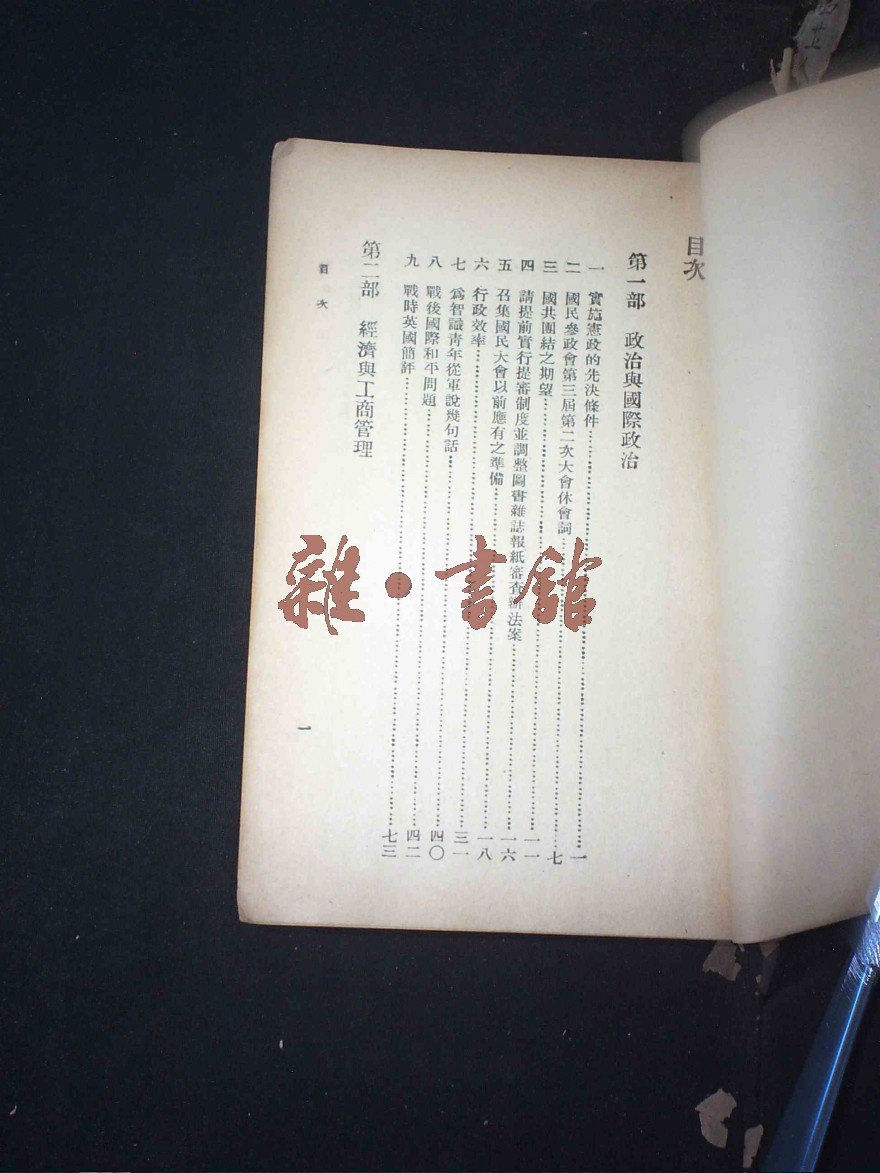 目次
第一部 政治與國際政治
一 實施憲政的先決條件……一
二 國民參政會第三屆第二次大會休會詞……七
三 國共團結之期望……一一
四 請提前實行提審制度並調整圖書雜誌報紙審查辦法案……一六
五 召集國民大會以前應有之準備……一八
六 行政效率……三一
七 爲智識青年從軍說幾句話……四〇
八 戰後國際和平問題……四二
九 戰時英國簡評……七三
第二部 經濟與工商管理
目次
一
雜·書館